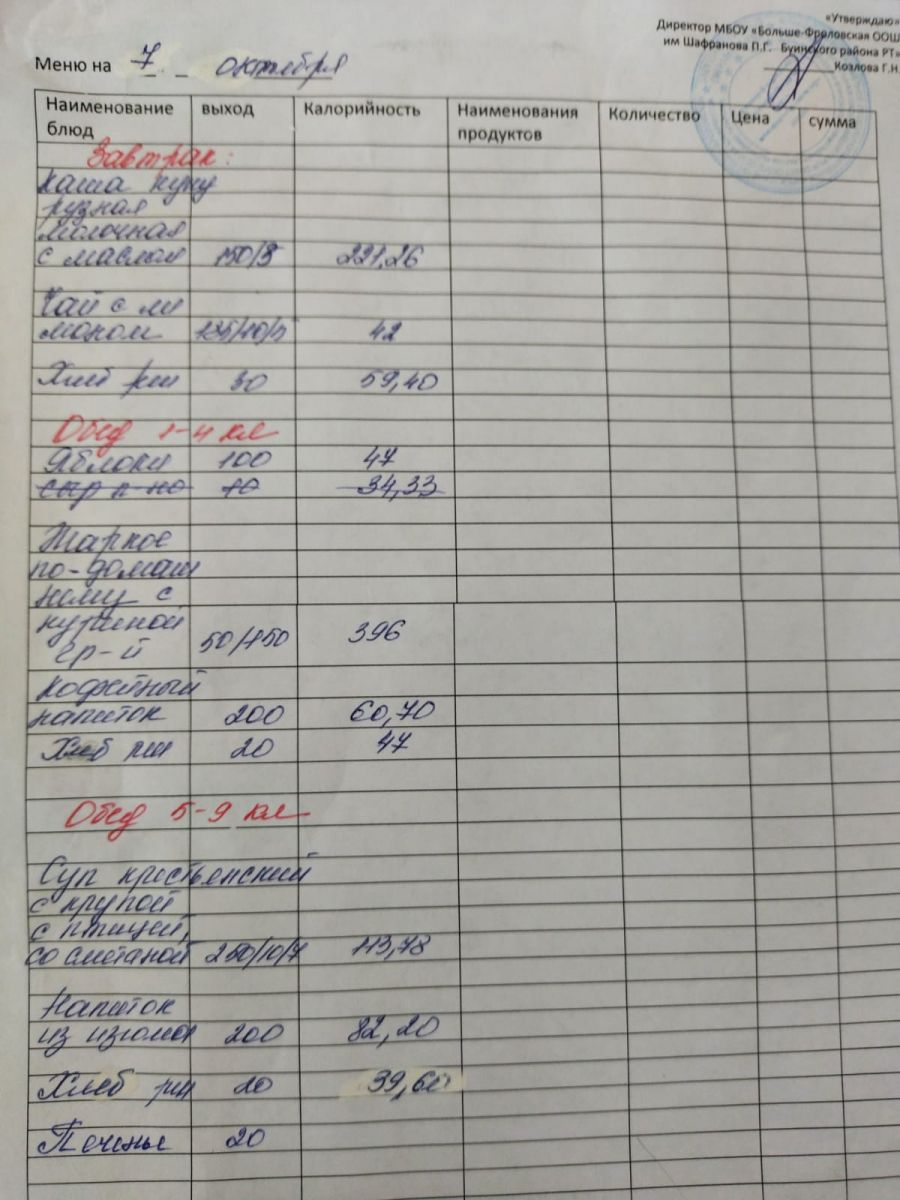 «Утверждаю»
Директор МБОУ «Больше-Фроловская ООШ
им Шафранова П.Г. Буинского района РТ»
Козлова Г.Н
Меню на 7 октября
Наименование блюд выход Калорийность Наименования продуктов Количество Цена сумма
Завтрак:
каша куку
рузная
молочная
с маслом 150/5 221,26
Чай с ли
моном 185/10/5 42
Хлеб рж 30 59,40
Обед 1-4 кл
Яблоки 100 47
сыр п-но 10 34,33
Жаркое
по-домаш
нему с
куриной
гр-й 50/150 396
кофейный
напиток 200 60,70
Хлеб рж 20 47
Обед 5-9 кл
Суп крестьенский
с крупой
с птицей,
со сметаной 250/10/7 113,78
Напиток
из изюма 200 82,20
Хлеб рж 20 39,60
Печенье 20